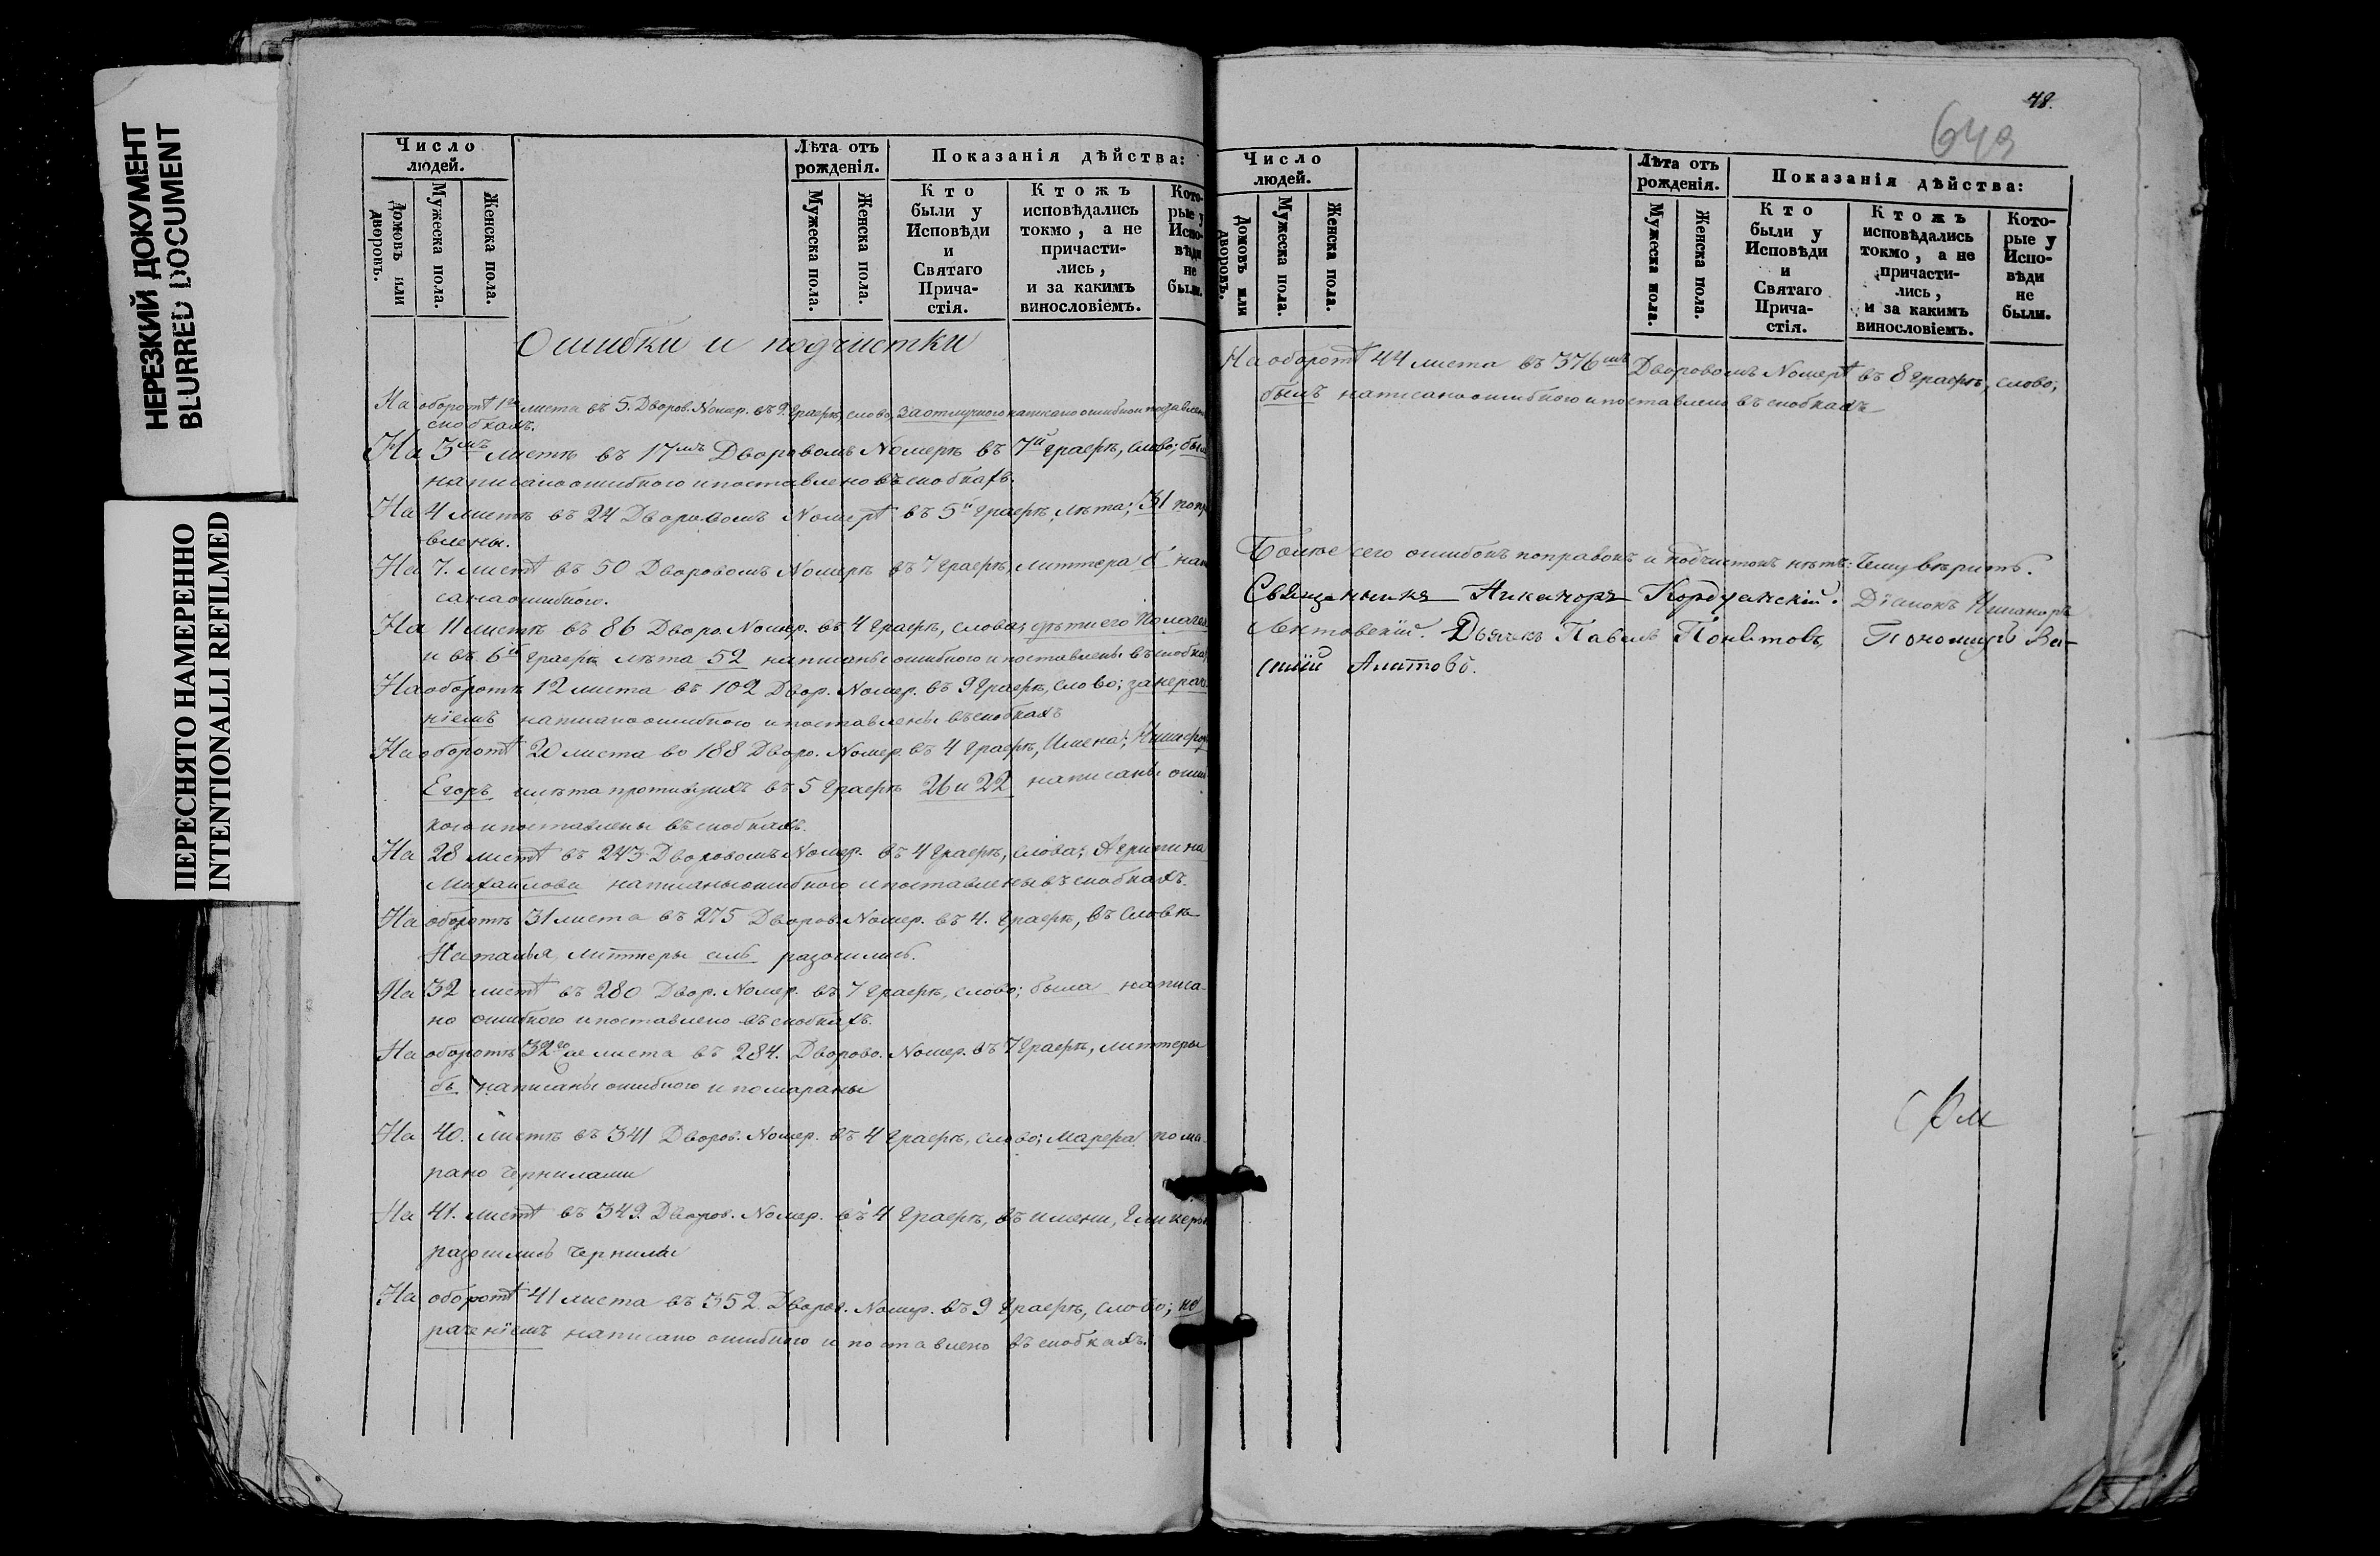 НЕРЕЗКИЙ ДОКУМЕНТ
BLURRED DOCUMENT
ПЕРЕСНЯТО НАМЕРЕННО
INTENTIONALLI REFILMED
Число людей.
Домовъ или дворовъ.
Мужеска пола.
Женска пола.
Лѣта отъ рожденія.
Мужеска пола.
Женска пола.
Показанія дѣйства:
Кто были у Исповѣди и Святаго Прича-стія.
Ктожъ исповѣдались токмо, а не причасти-лись, и за какимъ винословіемъ.
Кото-рые у Испо-вѣди не были.
Ошибки и подчистки
На оборотѣ 1го листа въ 5. Дворов. Номер. въ 9. графѣ, слово, за отлучкою написано ошибкою и поставлено
скобкахъ.
На 3мъ листѣ въ 17мъ Дворовомъ Номерѣ въ 7й графѣ, слово; была
написано ошибкою и поставлено въ скобкахъ.
На 4 листѣ въ 24 Дворовомъ Номерѣ въ 5й графѣ, лѣта; 31 попра
влены.
На 7. листѣ въ 50 Дворовомъ Номерѣ въ 7 графѣ, литтера б напи
сана ошибкою.
На 11 листѣ въ 86 Дворо. Номер. въ 4 графѣ, слова;
и въ 6й графѣ лѣта 52 написаны ошибкою и поставлены въ скобка
На оборотѣ 12 листа въ 102 Двор. Номер. въ 9 графѣ, слово; за нераче
ніемъ написано ошибкою и поставлены въ скобкахъ
На оборотѣ 20 листа во 188 Дворо. Номер. въ 4 графѣ, Имена;
Егоръ и лѣта противу ихъ въ 5 графѣ 26 и 22 написаны ошиб
кою и поставлены въ скобкахъ.
На 28 листѣ въ 243 Дворовомъ Номер. въ 4 графѣ, слова; Агрипина
Михайлова написаны ошибкою и поставлены въ скобкахъ.
На оборотѣ 31 листа въ 275 Дворов. Номер. въ 4. графѣ, въ словѣ
Наталья, литтеры разошлись.
На 32 листѣ въ 280 Двор. Номер. въ 7 графѣ, слово; была написа-
но ошибкою и поставлено въ скобкахъ.
На оборотѣ 32го листа въ 284. Дворово. Номер. въ 7 графѣ, литтеры
бы написаны ошибкою и помараны
На 40. листѣ въ 341 Дворов. Номер. въ 4 графѣ, слово; Марфа пома-
рано чернилами
На 41. листѣ въ 349. Дворов. Номер. въ 4 графѣ, въ имени, Гликерья
разошлись чернилы
На оборотѣ 41 листа въ 352. Дворов. Номер. въ 9 графѣ, слово; не
раченіемъ написано ошибкою и поставлено въ скобкахъ.
48.
643
Число людей.
Домовъ или дворовъ.
Мужеска пола.
Женска пола.
Лѣта отъ рожденія.
Мужеска пола.
Женска пола.
Показанія дѣйства:
Кто были у Исповѣди и Святаго Прича-стія.
Ктожъ исповѣдались токмо, а не причасти-лись, и за какимъ винословіемъ.
Кото-рые у Испо-вѣди не были.
На оборотѣ 44 листа въ 376мъ Дворовомъ Номерѣ въ 8 графѣ, слово;
былъ написано ошибкою и поставлено въ скобкахъ
Болѣе сего ошибокъ поправокъ и подчистокъ нѣтъ: Чему вѣрить.
Священникъ Никаноръ Діаконъ Никаноръ
Дьячекъ Павелъ Пономарь Ва-
силій